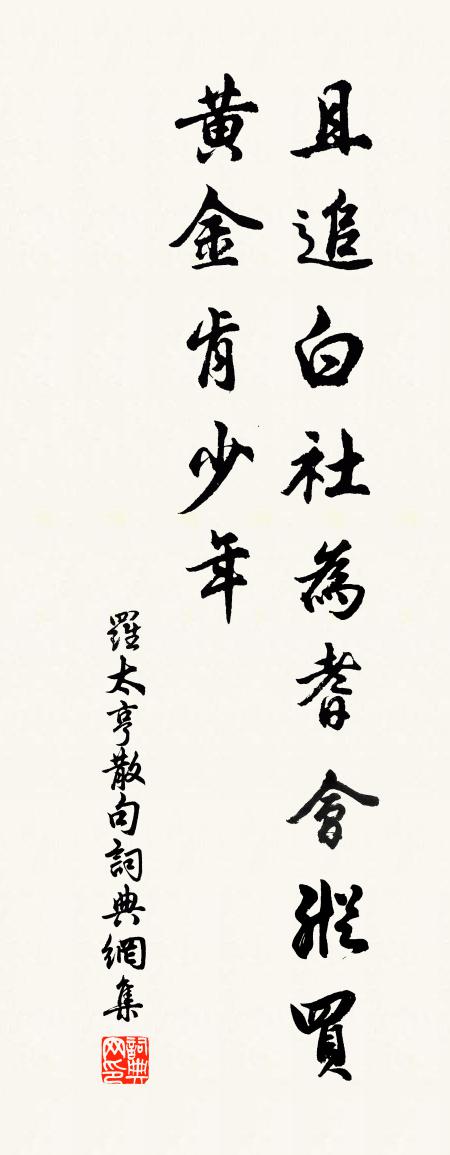 且追白社為耆會縱買
黃金肯少年
羅太亨散句詞典網集
詞典网印